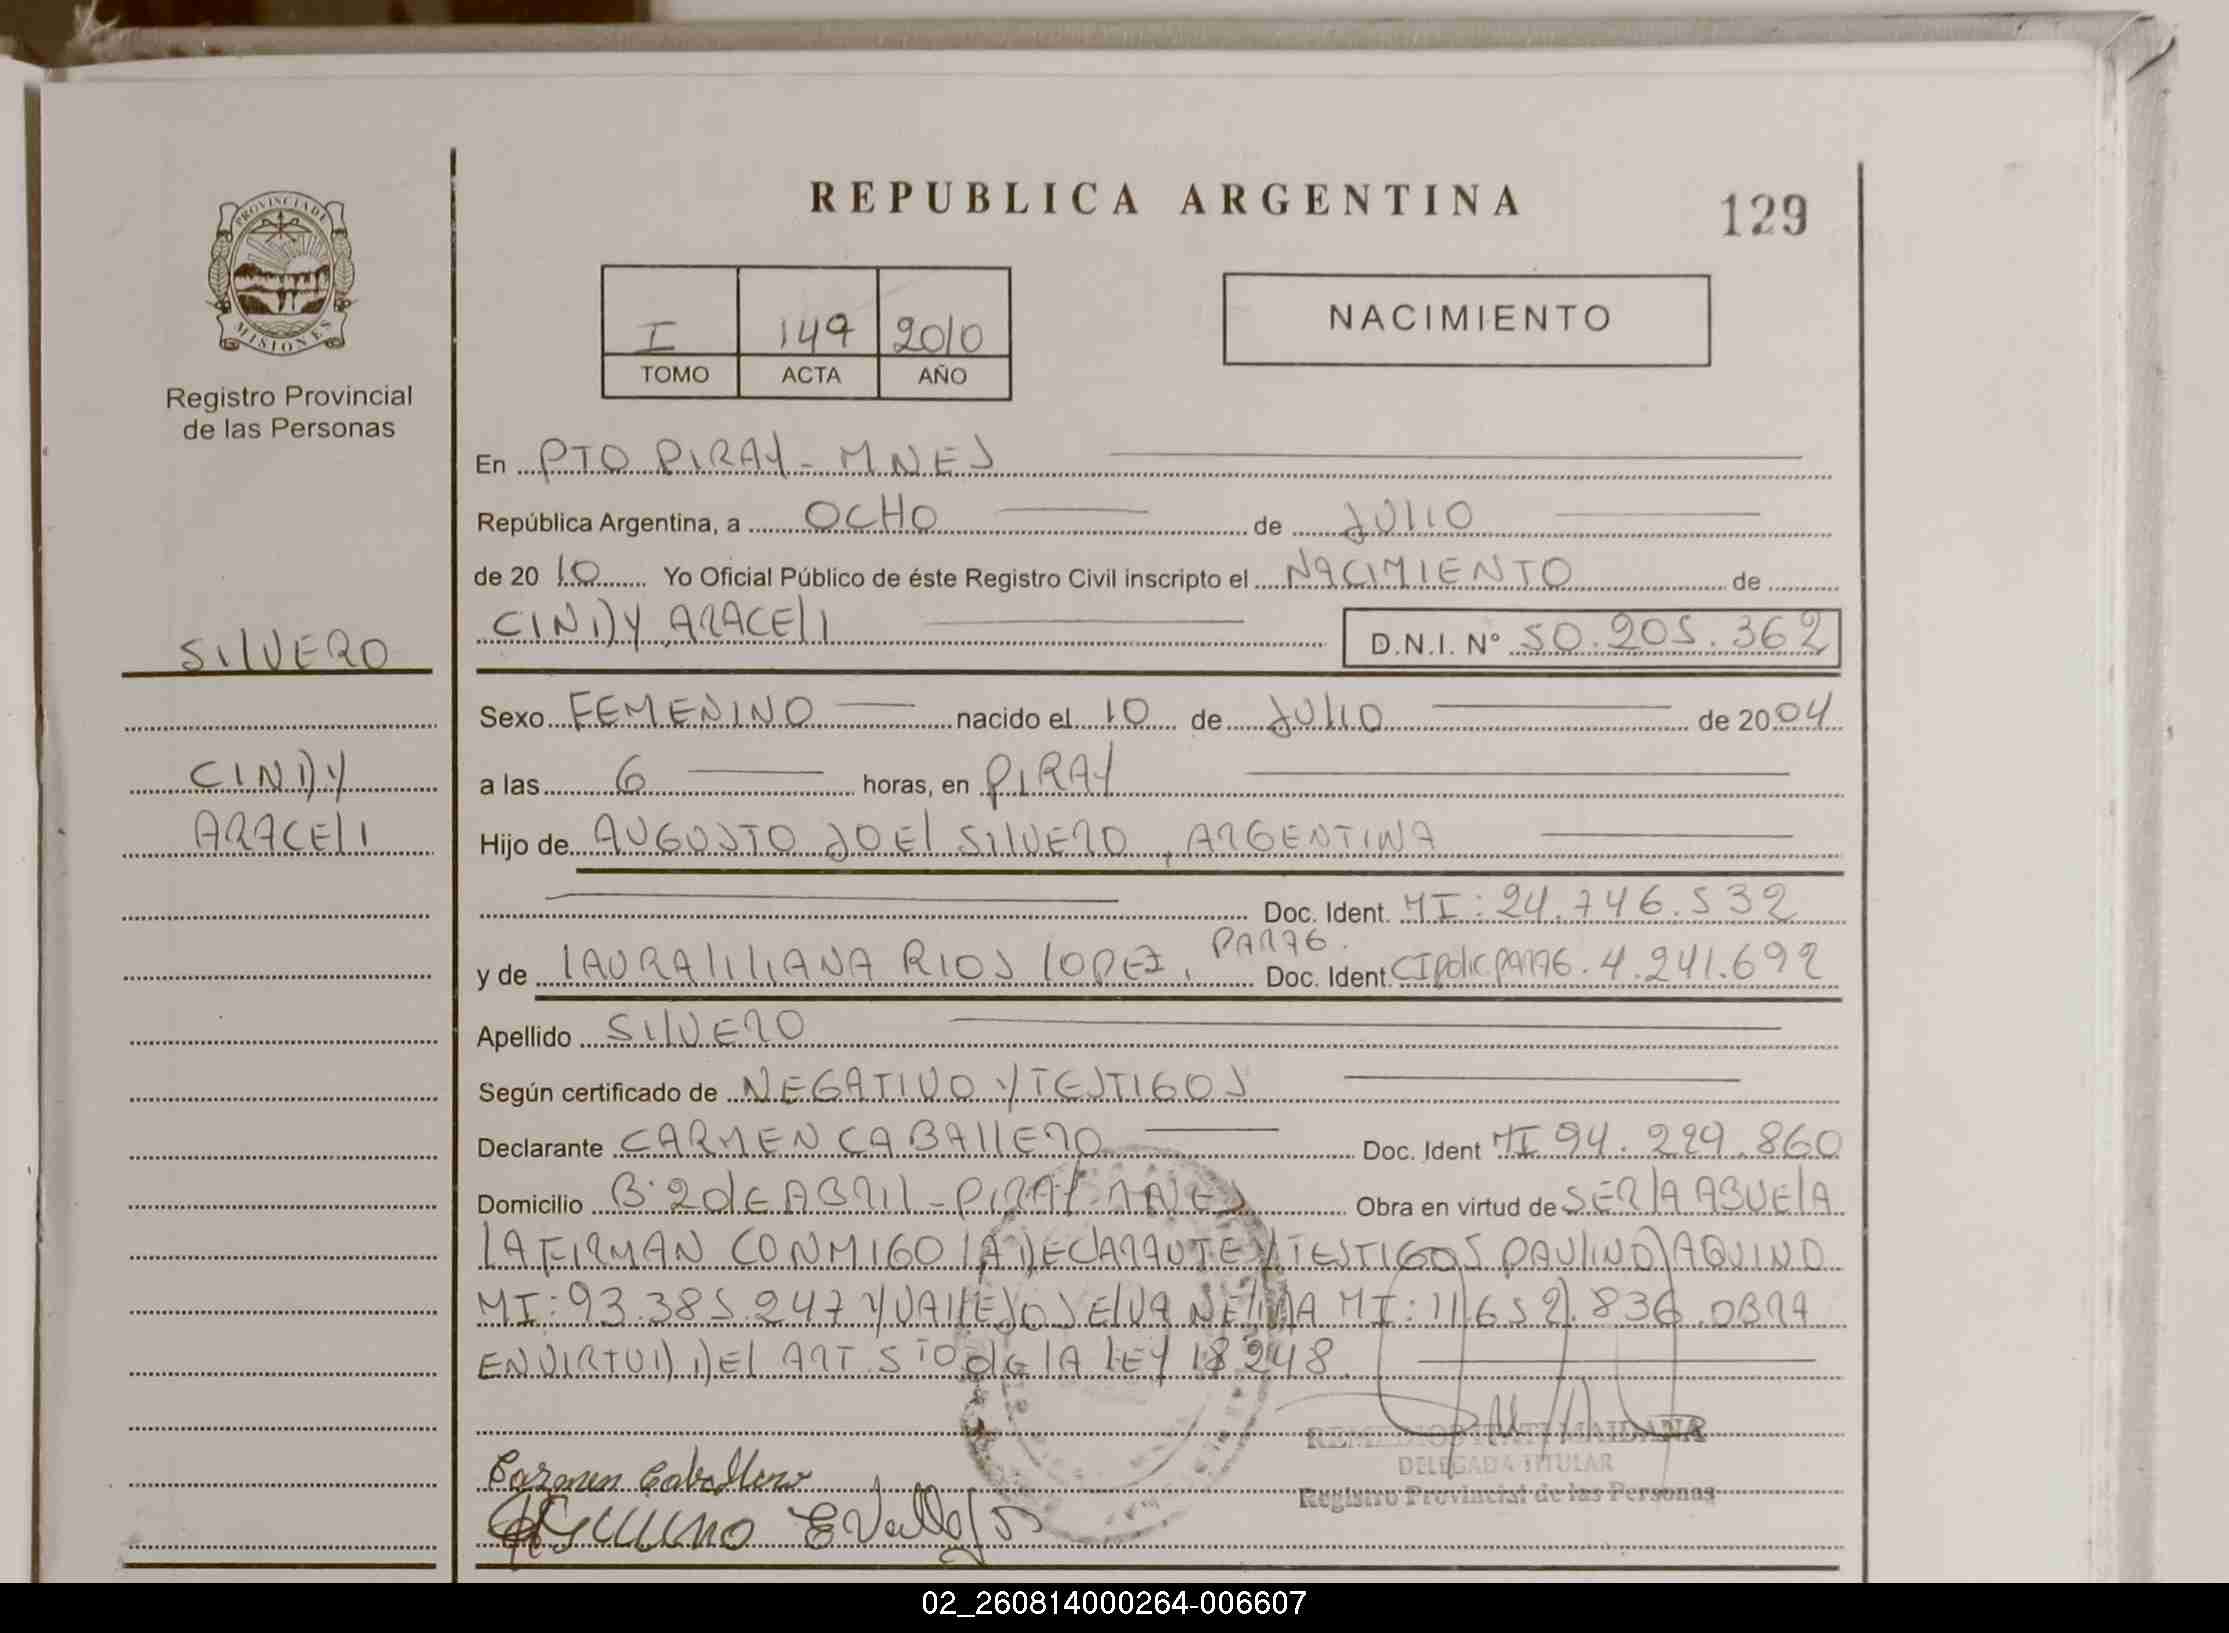 REPUBLICA ARGENTINA
129
PROVINCIA DE
MISIONES
Registro Provincial
de las Personas
I 149 2010
TOMO ACTA AÑO
NACIMIENTO
En PTO PIRAY - MNES
República Argentina, a OCHO de JULIO
de 20 10 Yo Oficial Público de éste Registro Civil inscripto el NACIMIENTO de
CINDY ARACELI D.N.I. Nº 50.205.362
SILVERO
CINDY
ARACELI
Sexo FEMENINO nacido el 10 de JULIO de 20 04
a las 6 horas, en PIRAY
Hijo de AUGUSTO JOEL SILVERO, ARGENTINA
Doc. Ident. MI: 24.746.532
y de LAURA LILIANA RIOS LOPEZ, PARAG. Doc. Ident. CI Polic PARAG. 4.241.692
Apellido SILVERO
Según certificado de NEGATIVO Y TESTIGOS
Declarante CARMEN CABALLERO Doc. Ident MI 94.229.860
Domicilio B: 2 dE ABRIL - PIRAY - MNES Obra en virtud de SER LA ABUELA
LA FIRMAN CONMIGO LA DECLARANTE Y TESTIGOS PAULINO AQUINO
MI: 93.385.247 Y VALLEJOS ELVA NELIDA MI: 11.652.836. OBRA
EN VIRTUD DEL ART. 5TO dE LA LEY 18248.
REMEDIOS ITATI MAIDANA
DELEGADA TITULAR
Registro Provincial de las Personas
Carmen Caballero
E Vallejos
02_260814000264-006607